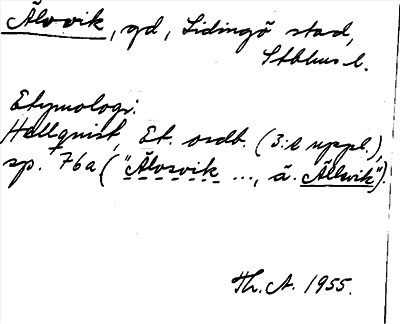 Älvvik, gd, Lidingö stad,
Sthlms l.
Etymologi.
Hellquist, Et. ordb. (3:e uppl.),
sp. 76a ("Älvsvik ..., ä. Ällvik").
Th. A. 1955.